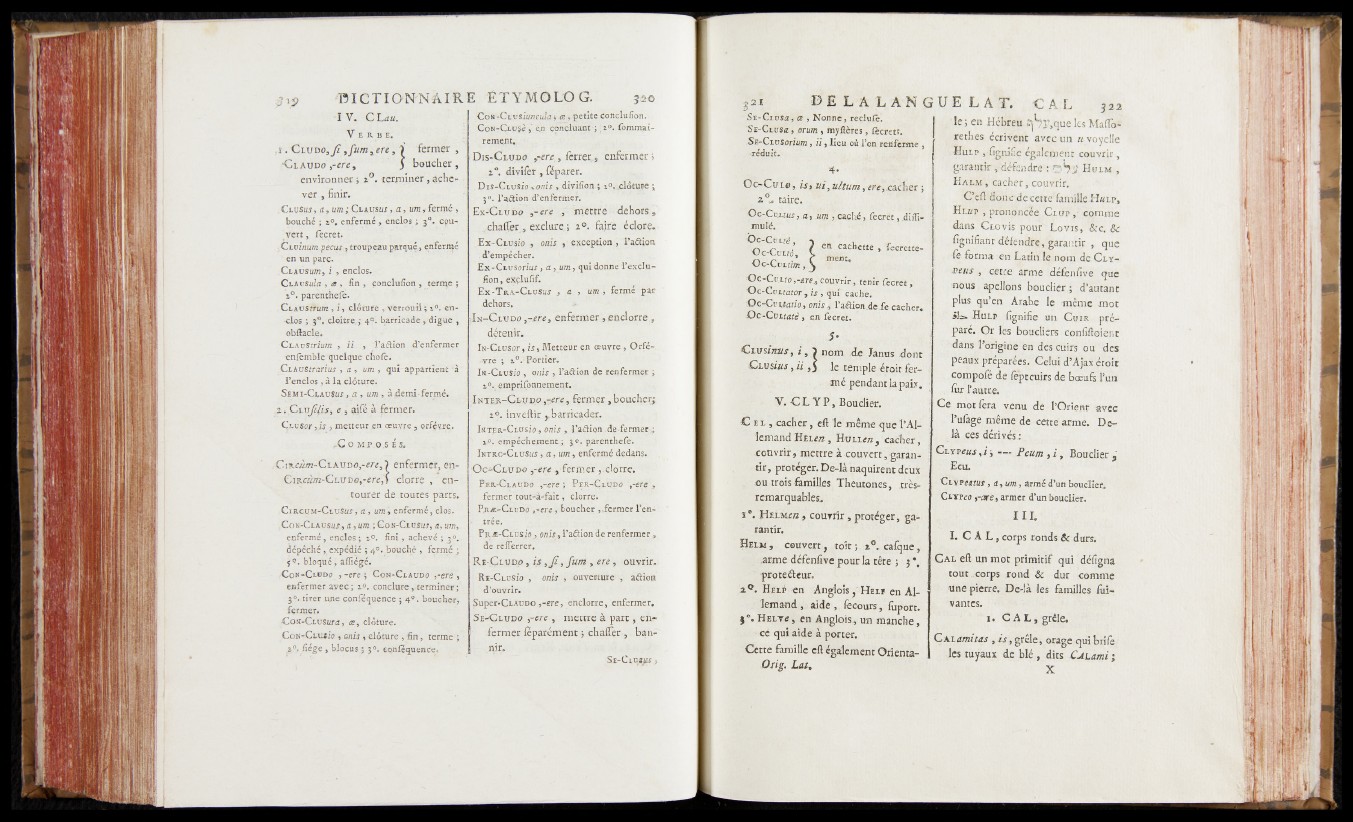 319 DICTIONNAIRE ETYMOLOG. 320
IV. CLau.
VERBE.
1. CLUDO, ſi, ſum, ere, } fermer,
CLAUDO, -ere, } boucher,
environner; 2°. terminer, ache-
ver, finir.
CLUSus, a, um; CLAUSus, a, um, fermé,
bouché; 2°. enfermé, enclos; 3°. cou-
vert, ſecret.
CLUinum pecus, troupeau parqué, enfermé
en un parc.
CLAUSum, i, enclos.
CLAUSula, æ, fin, concluſion, terme;
2°. parentheſe.
CLAUStrum, i, clôture, verrouil; 2°. en-
clos; 3°. cloître; 4°. barricade, digue,
obſtacle.
CLAUStrium, ii, l'action d'enfermer
enſemble quelque choſe.
CLAUStrarius, a, um, qui appartient à
l'enclos, à la clôture.
SEMI-CLAUSus, a, um, à demi fermé.
2. CLUſilis, e, aiſé à fermer.
CLUSor, is, metteur en œuvre, orfévre.
COMPOSÉS.
CIRcùm-CLAUDO, -ere, } enfermer, en-
CIRcùm-CLUDO, -ere, } clorre, en-
tourer de toutes parts.
CIRCUM-CLUSus, a, um, enfermé, clos.
CON-CLAUSus, a, um; CON-CLUSus, a, um,
enfermé, enclos; 2°. fini, achevé; 3°.
dépéché, expédié; 4°. bouché, fermé;
5°. bloqué, aſſiégé.
CON-CLUDO, -ere; CON-CLAUDO, -ere,
enfermer avec; 2°. conclure, terminer;
3°. tirer une conſéquence; 4°. boucher,
fermer.
CON-CLUSura, æ, clôture.
CON-CLUSio, onis, clôture, fin, terme;
2°. ſiége, blocus; 3°. conſéquence.
CON-CLUSiuncula, æ, petite concluſion.
CON-CLUSè, en concluant; 2°. ſommai-
rement.
DIS-CLUDO, -ere, ſerrer, enfermer;
2°. diviſer, ſéparer.
DIS-CLUSio, onis, diviſion; 2°. clôture;
3°. l'action d'enfermer.
EX-CLUDO, -ere, mettre dehors,
chaſſer, exclure; 2°. faire éclore.
EX-CLUSio, onis, exception, l'action
d'empêcher.
EX-CLUSorius, a, um, qui donne l'exclu-
ſion, excluſif.
EX-TRA-CLUSus, a, um, fermé par
dehors.
IN-CLUDO, -ere, enfermer, enclorre,
détenir.
IN-CLUSor, is, Metteur en œuvre, Orfé-
vre; 2°. Portier.
IN-CLUSio, onis, l'action de renfermer;
2°. empriſonnement.
INTER-CLUDO, -ere, fermer, boucher;
2°. inveſtir, barricader.
INTER-CLUSio, onis, l'action de fermer;
2°. empêchement; 3°. parentheſe.
INTRO-CLUSus, a, um, enfermé dedans.
OC-CLUDO, -ere, fermer, clorre.
PER-CLAUDO, -ere; PER-CLUDO, -ere,
fermer tout-à-fait, clorre.
PRÆ-CLUDO, -ere, boucher, fermer l'en-
trée.
PRÆ-CLUSio, onis, l'action de renfermer,
de reſſerrer.
RE-CLUDO, is, ſi, ſum, ere, ouvrir.
RE-CLUSio, onis, ouverture, action
d'ouvrir.
Super-CLAUDO, -ere, enclorre, enfermer.
SE-CLUDO, -ere, mettre à part, en-
fermer ſéparément; chaſſer, ban-
nir.
SE-CLUSus,
321 DE LA LANGUE LAT. CAL 322
SE-CLUSa, æ, Nonne, recluſe.
SE-CLUSa, orum, myſtères, ſecrets.
SE-CLUSorium, ii, lieu où l'on renferme,
réduit.
4.
OC-CULO, is, ui, ultum, ere, cacher;
2°. taire.
OC-CULtus, a, um, caché, ſecret, diſſi-
mulé.
OC-CULtè, } en cachette, ſecrette-
OC-CULtò, } ment.
OC-CULtim, }
OC-CULto, -are, couvrir, tenir ſecret,
OC-CULtator, is, qui cache.
OC-CULtatio, onis, l'action de ſe cacher.
OC-CULtatè, en ſecret.
5.
CLUSinus, i, } nom de Janus dont
CLUSius, ii, } le temple étoit fer-
mé pendant la paix.
V. CLYP, Bouclier.
CEL, cacher, eſt le même que l'Al-
lemand HELen, HULLen, cacher,
couvrir, mettre à couvert, garan-
tir, protéger. De-là naquirent deux
ou trois familles Theutones, très-
remarquables.
1°. HELMen, couvrir, protéger, ga-
rantir.
HELM, couvert, toît; 2°. caſque,
arme défenſive pour la tête; 3°.
protecteur.
2°. HELP en Anglois, HELF en Al-
lemand, aide, ſecours, ſuport.
3°. HELVe, en Anglois, un manche,
ce qui aide à porter.
Cette famille eſt également Orienta-
Orig. Lat.
le; en Hébreu עלף, que les Maſſo-
rethes écrivent avec un u voyelle
HULP, ſignifie également couvrir,
garantir, défendre: עלם HULM,
HALM, cacher, couvrir.
C'eſt donc de cette famille HULP,
HLUP, prononcée CLUP, comme
dans CLOVIS pour LOVIS, &c. &
ſignifiant défendre, garantir, que
ſe forma en Latin le nom de CLY-
PEUS, cette arme défenſive que
nous apellons bouclier; d'autant
plus qu'en Arabe le même mot
HULP ſignifie un CUIR pré-
paré. Or les boucliers conſiſtoient
dans l'origine en des cuirs ou des
peaux préparées. Celui d'Ajax étoit
compoſé de ſept cuirs de bœufs l'un
ſur l'autre.
Ce mot ſera venu de l'Orient avec
l'uſage même de cette arme. De-
là ces dérivés:
CLYPEUS, i; — PEum, i, Bouclier,
Ecu.
CLYPEatus, a, um, armé d'un bouclier.
CLYPeo, -are, armer d'un bouclier.
III.
I. CAL, corps ronds & durs.
CAL eſt un mot primitif qui déſigna
tout corps rond & dur comme
une pierre. De-là les familles ſui-
vantes.
1. CAL, grêle.
CALamitas, is, grêle, orage qui briſe
les tuyaux de blé, dits CALami;
X